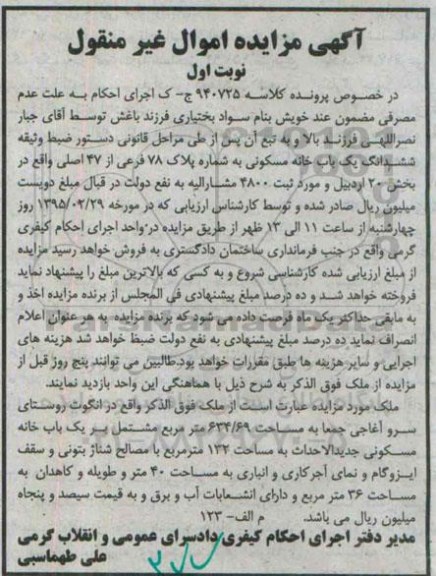 آگهی مزایده اموال غیر منقول
نوبت اول
در خصوص پرونده کلاسه ۹۴۰۷۲۵ ج- ک اجرای احکام به علت عدم
مصرفی مضمون عند خویش بنام سواد بختیاری فرزند باغش توسط آقای جبار
نصراللهی فرزند بالا و به تبع آن پس از طی مراحل قانونی دستور ضبط وثیقه
ششدانگ یک باب خانه مسکونی به شماره پلاک ۷۸ فرعی از ۴۷ اصلی واقع در
بخش ۲۰ اردبیل و مورد ثبت ۴۸۰۰ مشارالیه به نفع دولت در قبال مبلغ دویست
میلیون ریال صادر شده و توسط کارشناس ارزیابی که در مورخه ۱۳۹۵/۰۲/۲۹ روز
چهارشنبه از ساعت ۱۱ الی ۱۳ ظهر از طریق مزایده در واحد اجرای احکام کیفری
گرمی واقع در جنب فرمانداری ساختمان دادگستری به فروش خواهد رسید مزایده
از مبلغ ارزیابی شده کارشناسی شروع و به کسی که بالاترین مبلغ را پیشنهاد نماید
فروخته خواهد شد و ده درصد مبلغ پیشنهادی فی المجلس از برنده مزایده اخذ و
به مابقی حداکثر یک ماه فرصت داده می شود که برنده مزایده به هر عنوان اعلام
انصراف نماید ده درصد مبلغ پیشنهادی به نفع دولت ضبط خواهد شد هزینه های
اجرایی و سایر هزینه ها طبق مقررات خواهد بود.طالبین می توانند پنج روز قبل از
مزایده از ملک فوق الذکر به شرح ذیل با هماهنگی این واحد بازدید نمایند.
ملک مورد مزایده عبارت است از ملک فوق الذکر واقع در انگوت روستای
سرو آغاجی جمعا به مساحت ۶۳۴/۶۹ متر مربع مشتمل بر یک باب خانه
مسکونی جدیدالاحداث به مساحت ۱۳۲ مترمربع با مصالح شناژ بتونی و سقف
ایزوگام و نمای آجرکاری و انباری به مساحت ۴۰ متر و طویله و کاهدان به
مساحت ۳۶ متر مربع و دارای انشعابات آب و برق و به قیمت سیصد و پنجاه
میلیون ریال می باشد. م الف- ۱۲۳
مدیر دفتر اجرای احکام کیفری دادسرای عمومی و انقلاب گرمی
علی طهماسبی